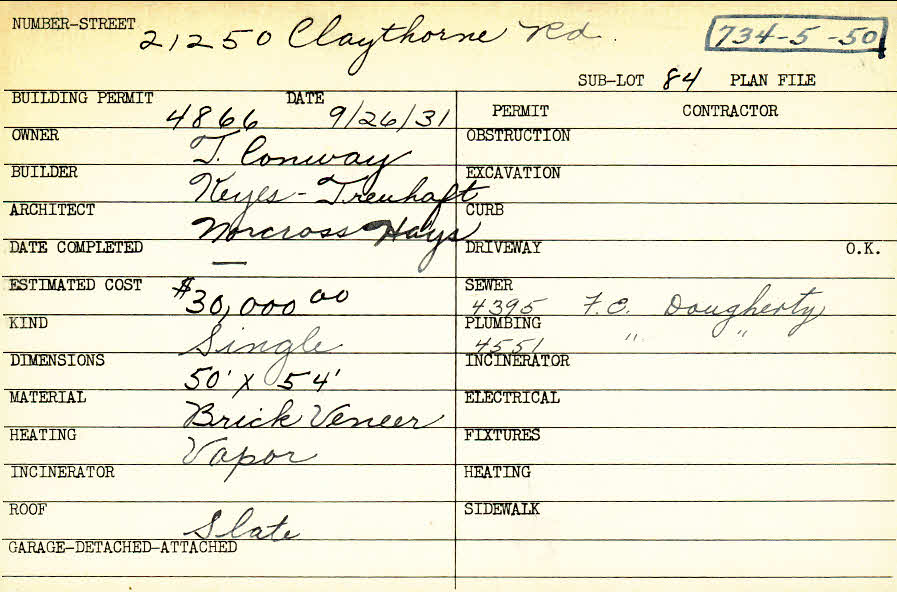 NUMBER-STREET 21250 Claythorne Rd. 734-5-50
SUB-LOT 84 PLAN FILE
BUILDING PERMIT 4866 DATE 9/26/31
PERMIT CONTRACTOR
OWNER T. Conway
OBSTRUCTION
BUILDER Keyes-Treuhaft
EXCAVATION
ARCHITECT Norcross Hays
CURB
DATE COMPLETED —
DRIVEWAY O.K.
ESTIMATED COST $30,000 00
SEWER 4395 F.C. Dougherty
KIND Single
PLUMBING 4551 " "
DIMENSIONS 50' X 54'
INCINERATOR
MATERIAL Brick Veneer
ELECTRICAL
HEATING Vapor
FIXTURES
INCINERATOR
HEATING
ROOF Slate
SIDEWALK
GARAGE-DETACHED-ATTACHED